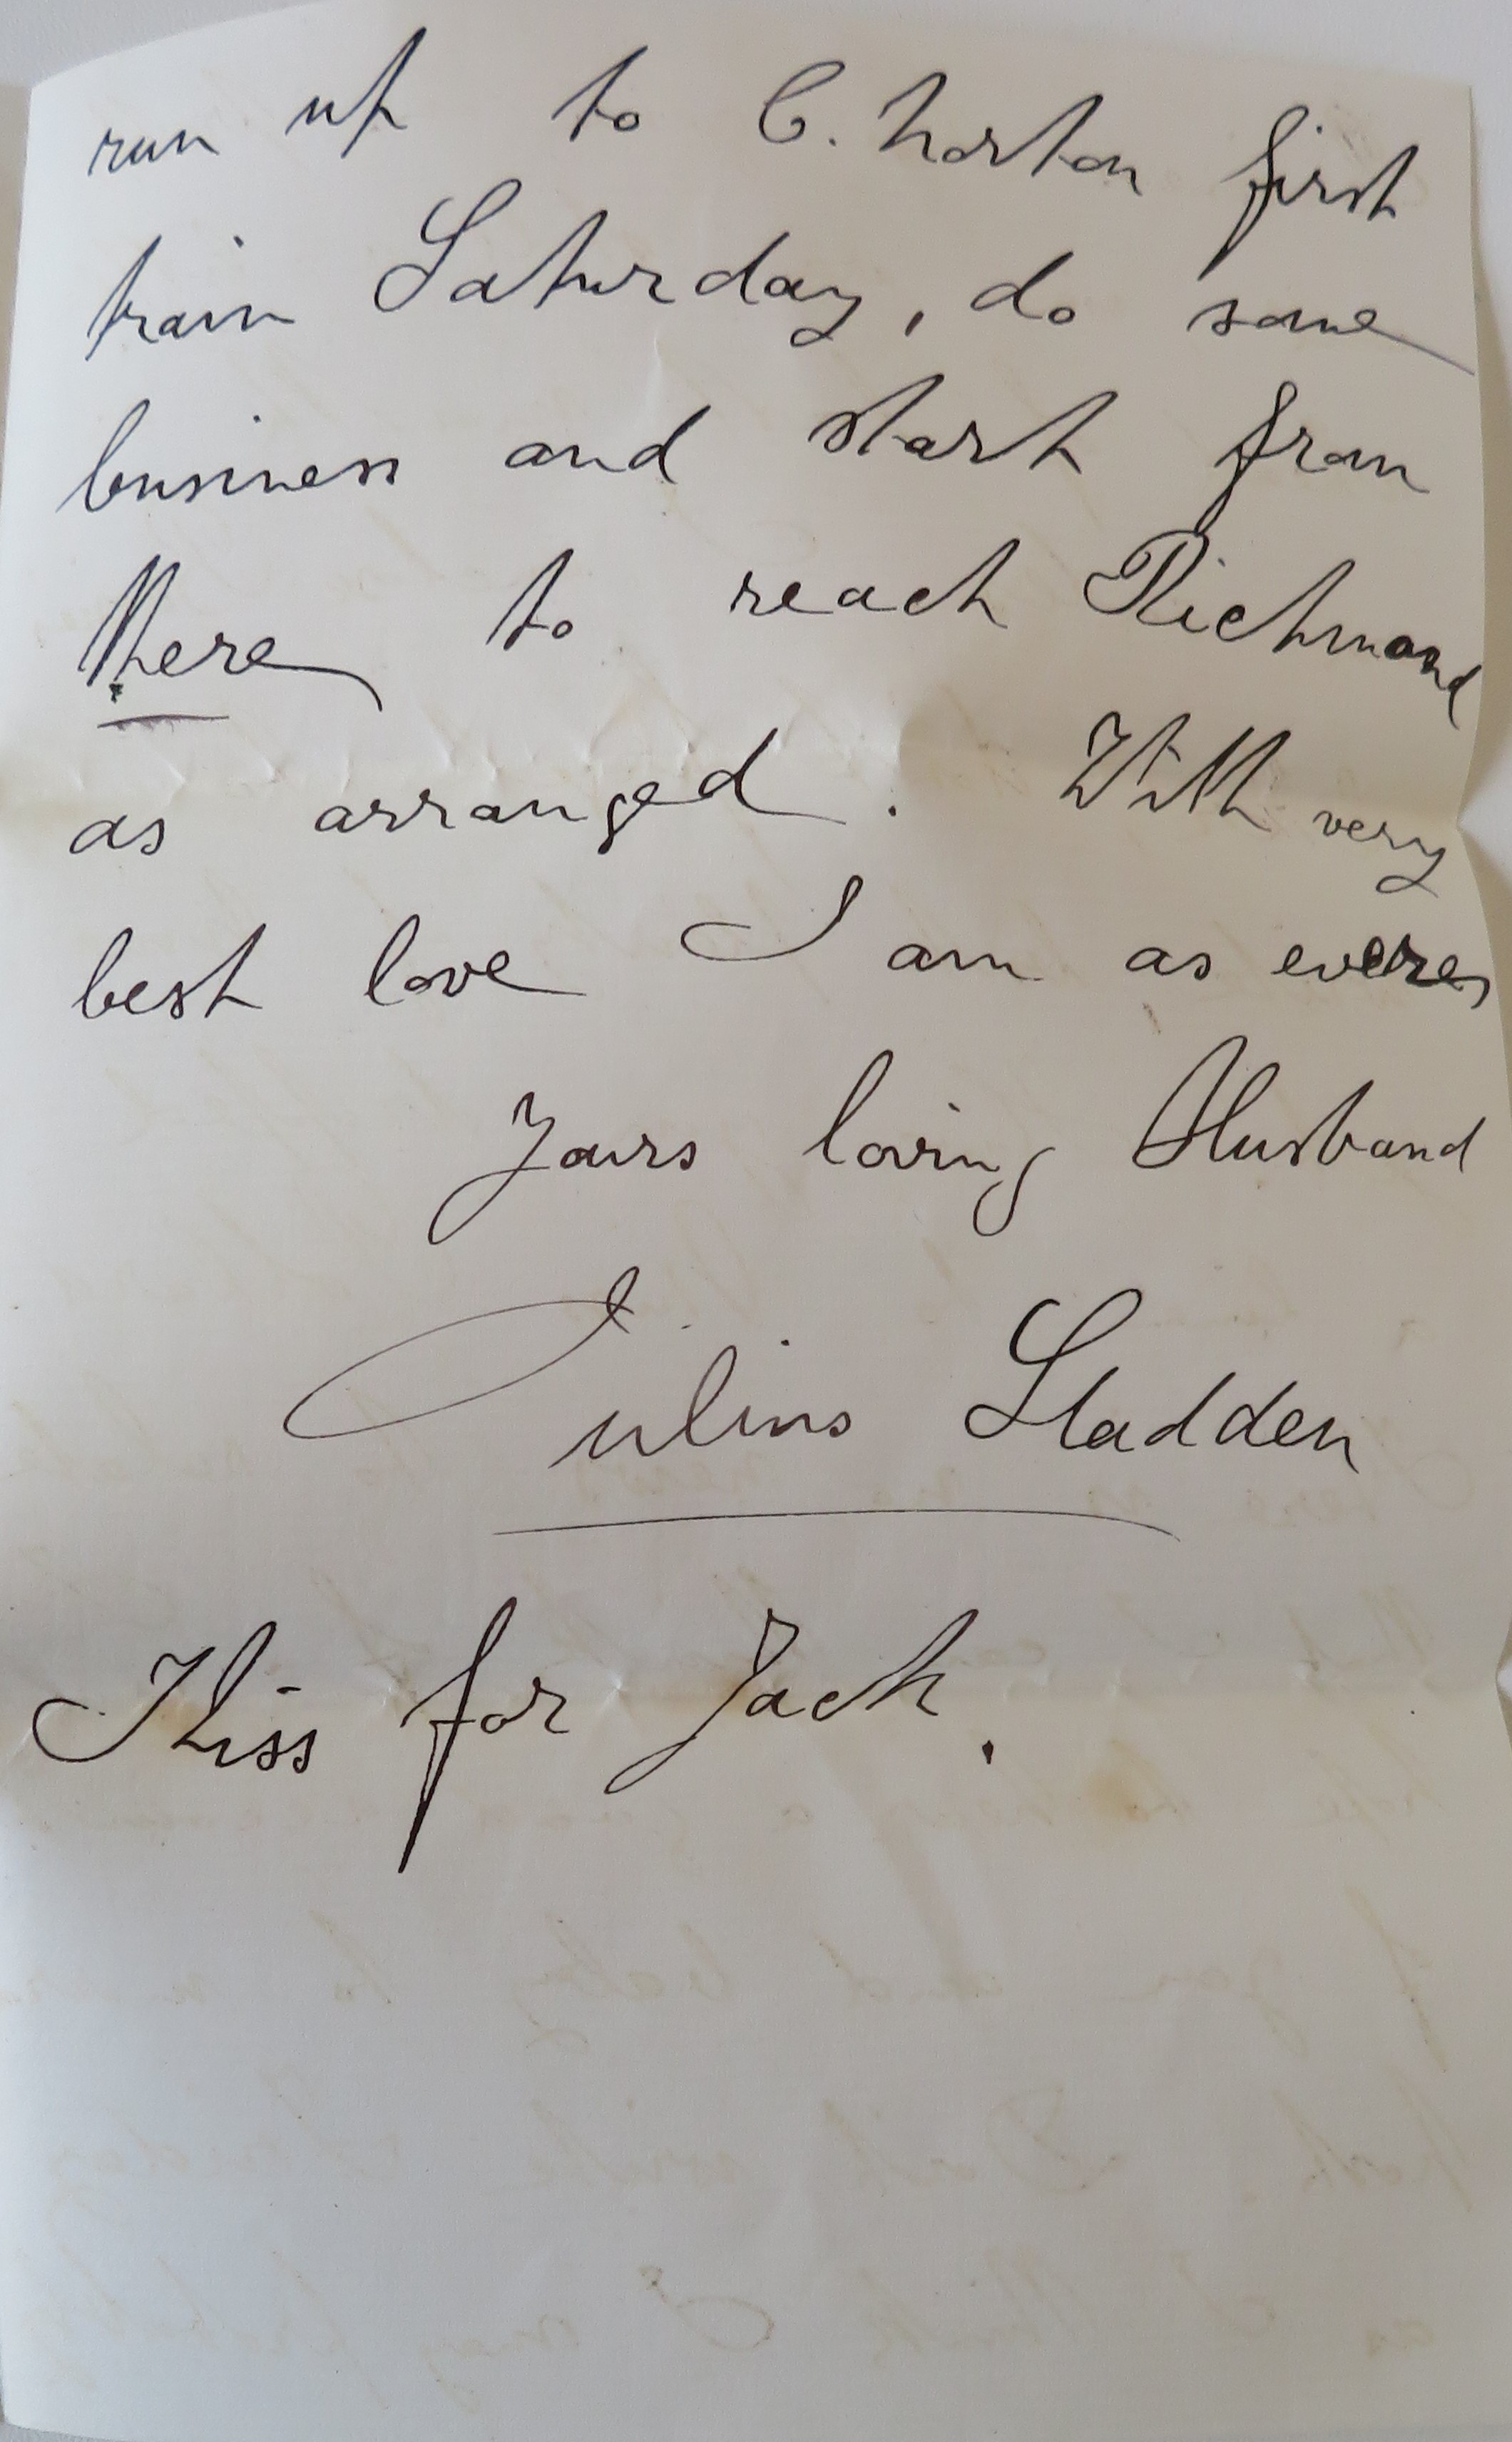 run up to C. Norton first
train Saturday, do some
business and start from
there to reach Richmond
as arranged. With very
best love I am as ever
Yours loving Husband
Julius Sladden
Kiss for Jack.